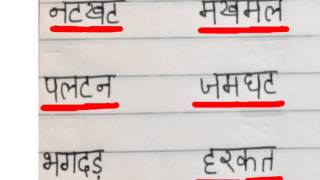 नटखट मखमल
पलटन जमघट
भगदड़ हरकत